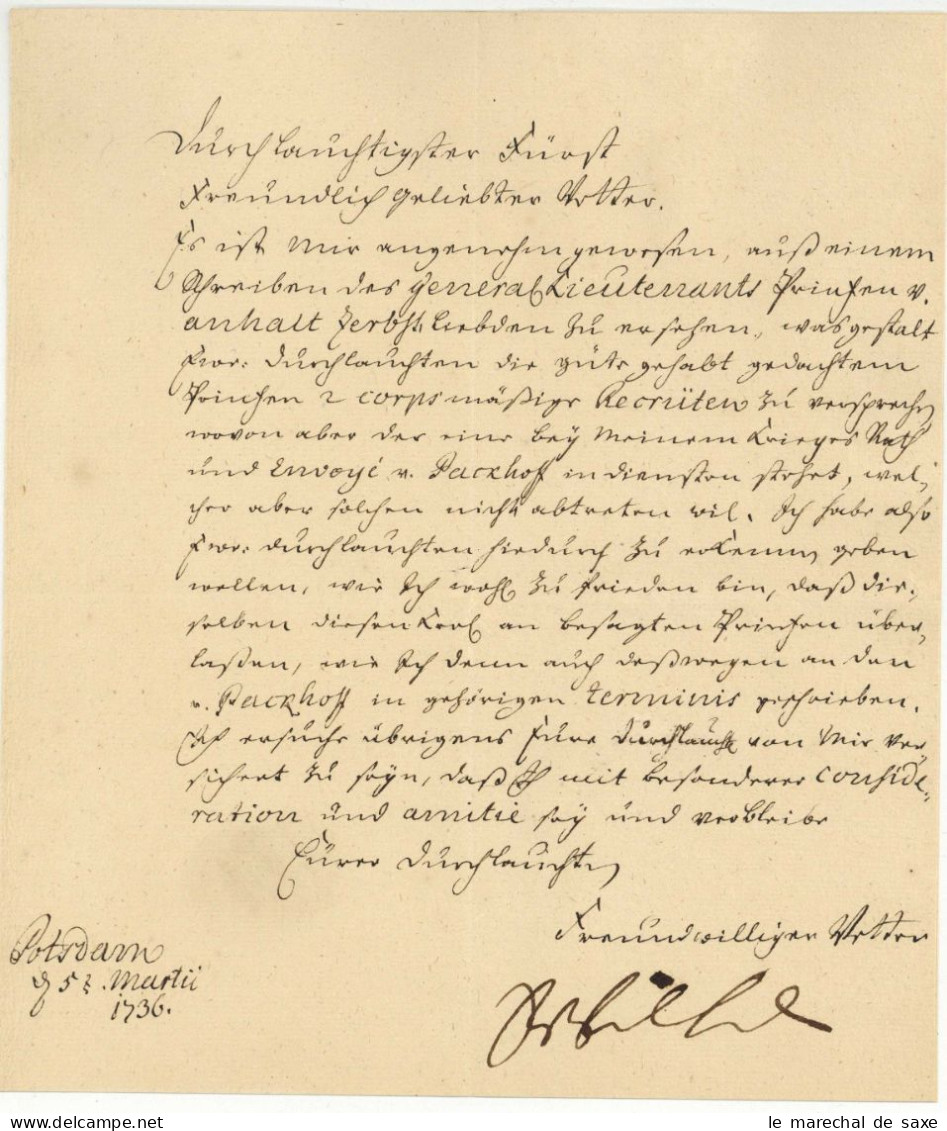 Durchlauchtigster Fürst
Freundlich geliebter Vetter.
Es ist Mir angenehm gewesen, auß einem
Schreiben des General Lieutenants Printzen v.
anhalt Zerbst liebden zu ersehen, wasgestalt
Ewr: Durchlauchten die güte gehabt gedachtem
Printzen 2 corps mäßige Recrüten zu versprechen
wovon aber der eine bey Meinem Krieges Rath
und Envoyé v. Backhoff in diensten stehet, wel,
cher aber solchen nicht abtreten wil. Ich habe also
Ewr: Durchlauchten hiedurch zu erkennen geben
wollen, wie Ich wohl zu frieden bin, daß die,
selben diesen Kerl an besagten Printzen über,
laßen, wie Ich denn auch deßwegen an den
v. Backhoff in gehörigen terminis geschrieben.
Ich ersuche übrigens Eure Durchlaucht von Mir ver
sichert zu seyn, daß Ich mit besonderer conside,,
ration und amitié sey und verbleibe
Eurer Durchlauchten
Freundwilliger Vetter
Potsdam
d 5t. Martii
1736.
le marechal de saxe